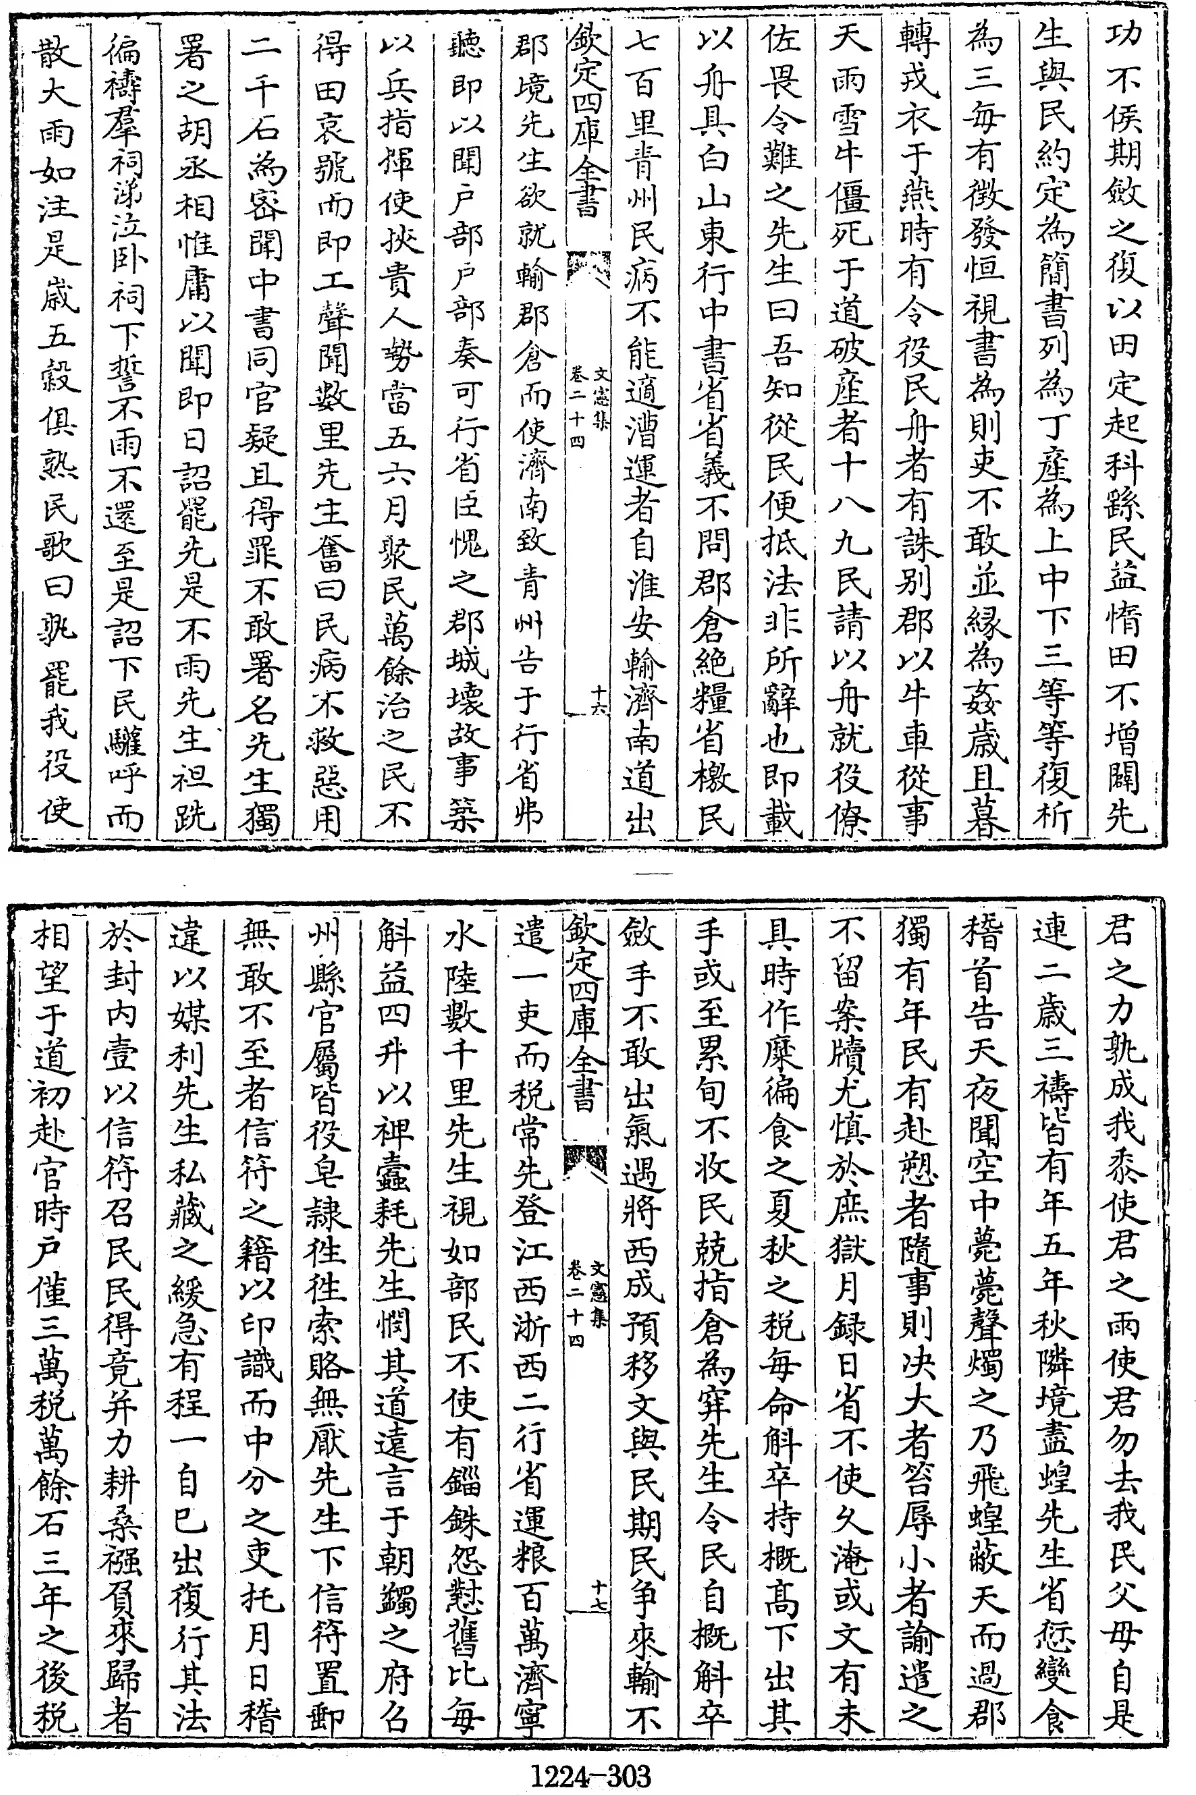 功不俟期斂之復以田定起科繇民益惰田不增闢先
生與民約定為簡書列為丁產為上中下三等等復析
為三每有徵發恒視書為則吏不敢並緣為姦歲且暮
轉戎衣于燕時有令役民舟者有誅别郡以牛車從事
天雨雪牛僵死于道破產者十八九民請以舟就役僚
佐畏令難之先生曰吾知從民便抵法非所辭也即載
以舟具白山東行中書省省義不問郡倉絶糧省檄民
七百里青州民病不能適漕運者自淮安輸濟南道出
欽定四庫全書
文憲集
卷二十四
十六
郡境先生欲就輸郡倉而使濟南致青州告于行省弗
聽即以聞户部户部奏可行省臣愧之郡城壊故事築
以兵指揮使挾貴人勢當五六月聚民萬餘治之民不
得田哀號而即工聲聞數里先生奮曰民病不救惡用
二千石為密聞中書同官疑且得罪不敢署名先生獨
署之胡丞相惟庸以聞即日詔罷先是不雨先生袒跣
徧禱羣祠涕泣卧祠下誓不雨不還至是詔下民驩呼而
散大雨如注是歲五穀俱熟民歌曰孰罷我役使
君之力孰成我黍使君之雨使君勿去我民父母自是
連二歲三禱皆有年五年秋隣境盡蝗先生省愆變食
稽首告天夜聞空中薨薨聲燭之乃飛蝗蔽天而過郡
獨有年民有赴愬者隨事則决大者笞辱小者諭遣之
不留案牘尤慎於庶獄月録日省不使久淹或文有未
具時作糜徧食之夏秋之税每命斛卒持概高下出其
手或至累旬不收民兢指倉為穽先生令民自概斛卒
斂手不敢出氣遇將西成預移文與民期民争來輸不
欽定四庫全書
文憲集
卷二十四
十七
遣一吏而税常先登江西浙西二行省運粮百萬濟寧
水陸數千里先生視如部民不使有錙銖怨懟舊比每
斛益四升以裨蠹耗先生憫其道遠言于朝蠲之府召
州縣官屬皆役皂隷徃徃索賂無厭先生下信符置郵
無敢不至者信符之籍以印識而中分之吏托月日稽
違以媒利先生私藏之緩急有程一自已出復行其法
於封内壹以信符召民民得竟并力耕桑襁負來歸者
相望于道初赴官時户僅三萬税萬餘石三年之後税
1224-303